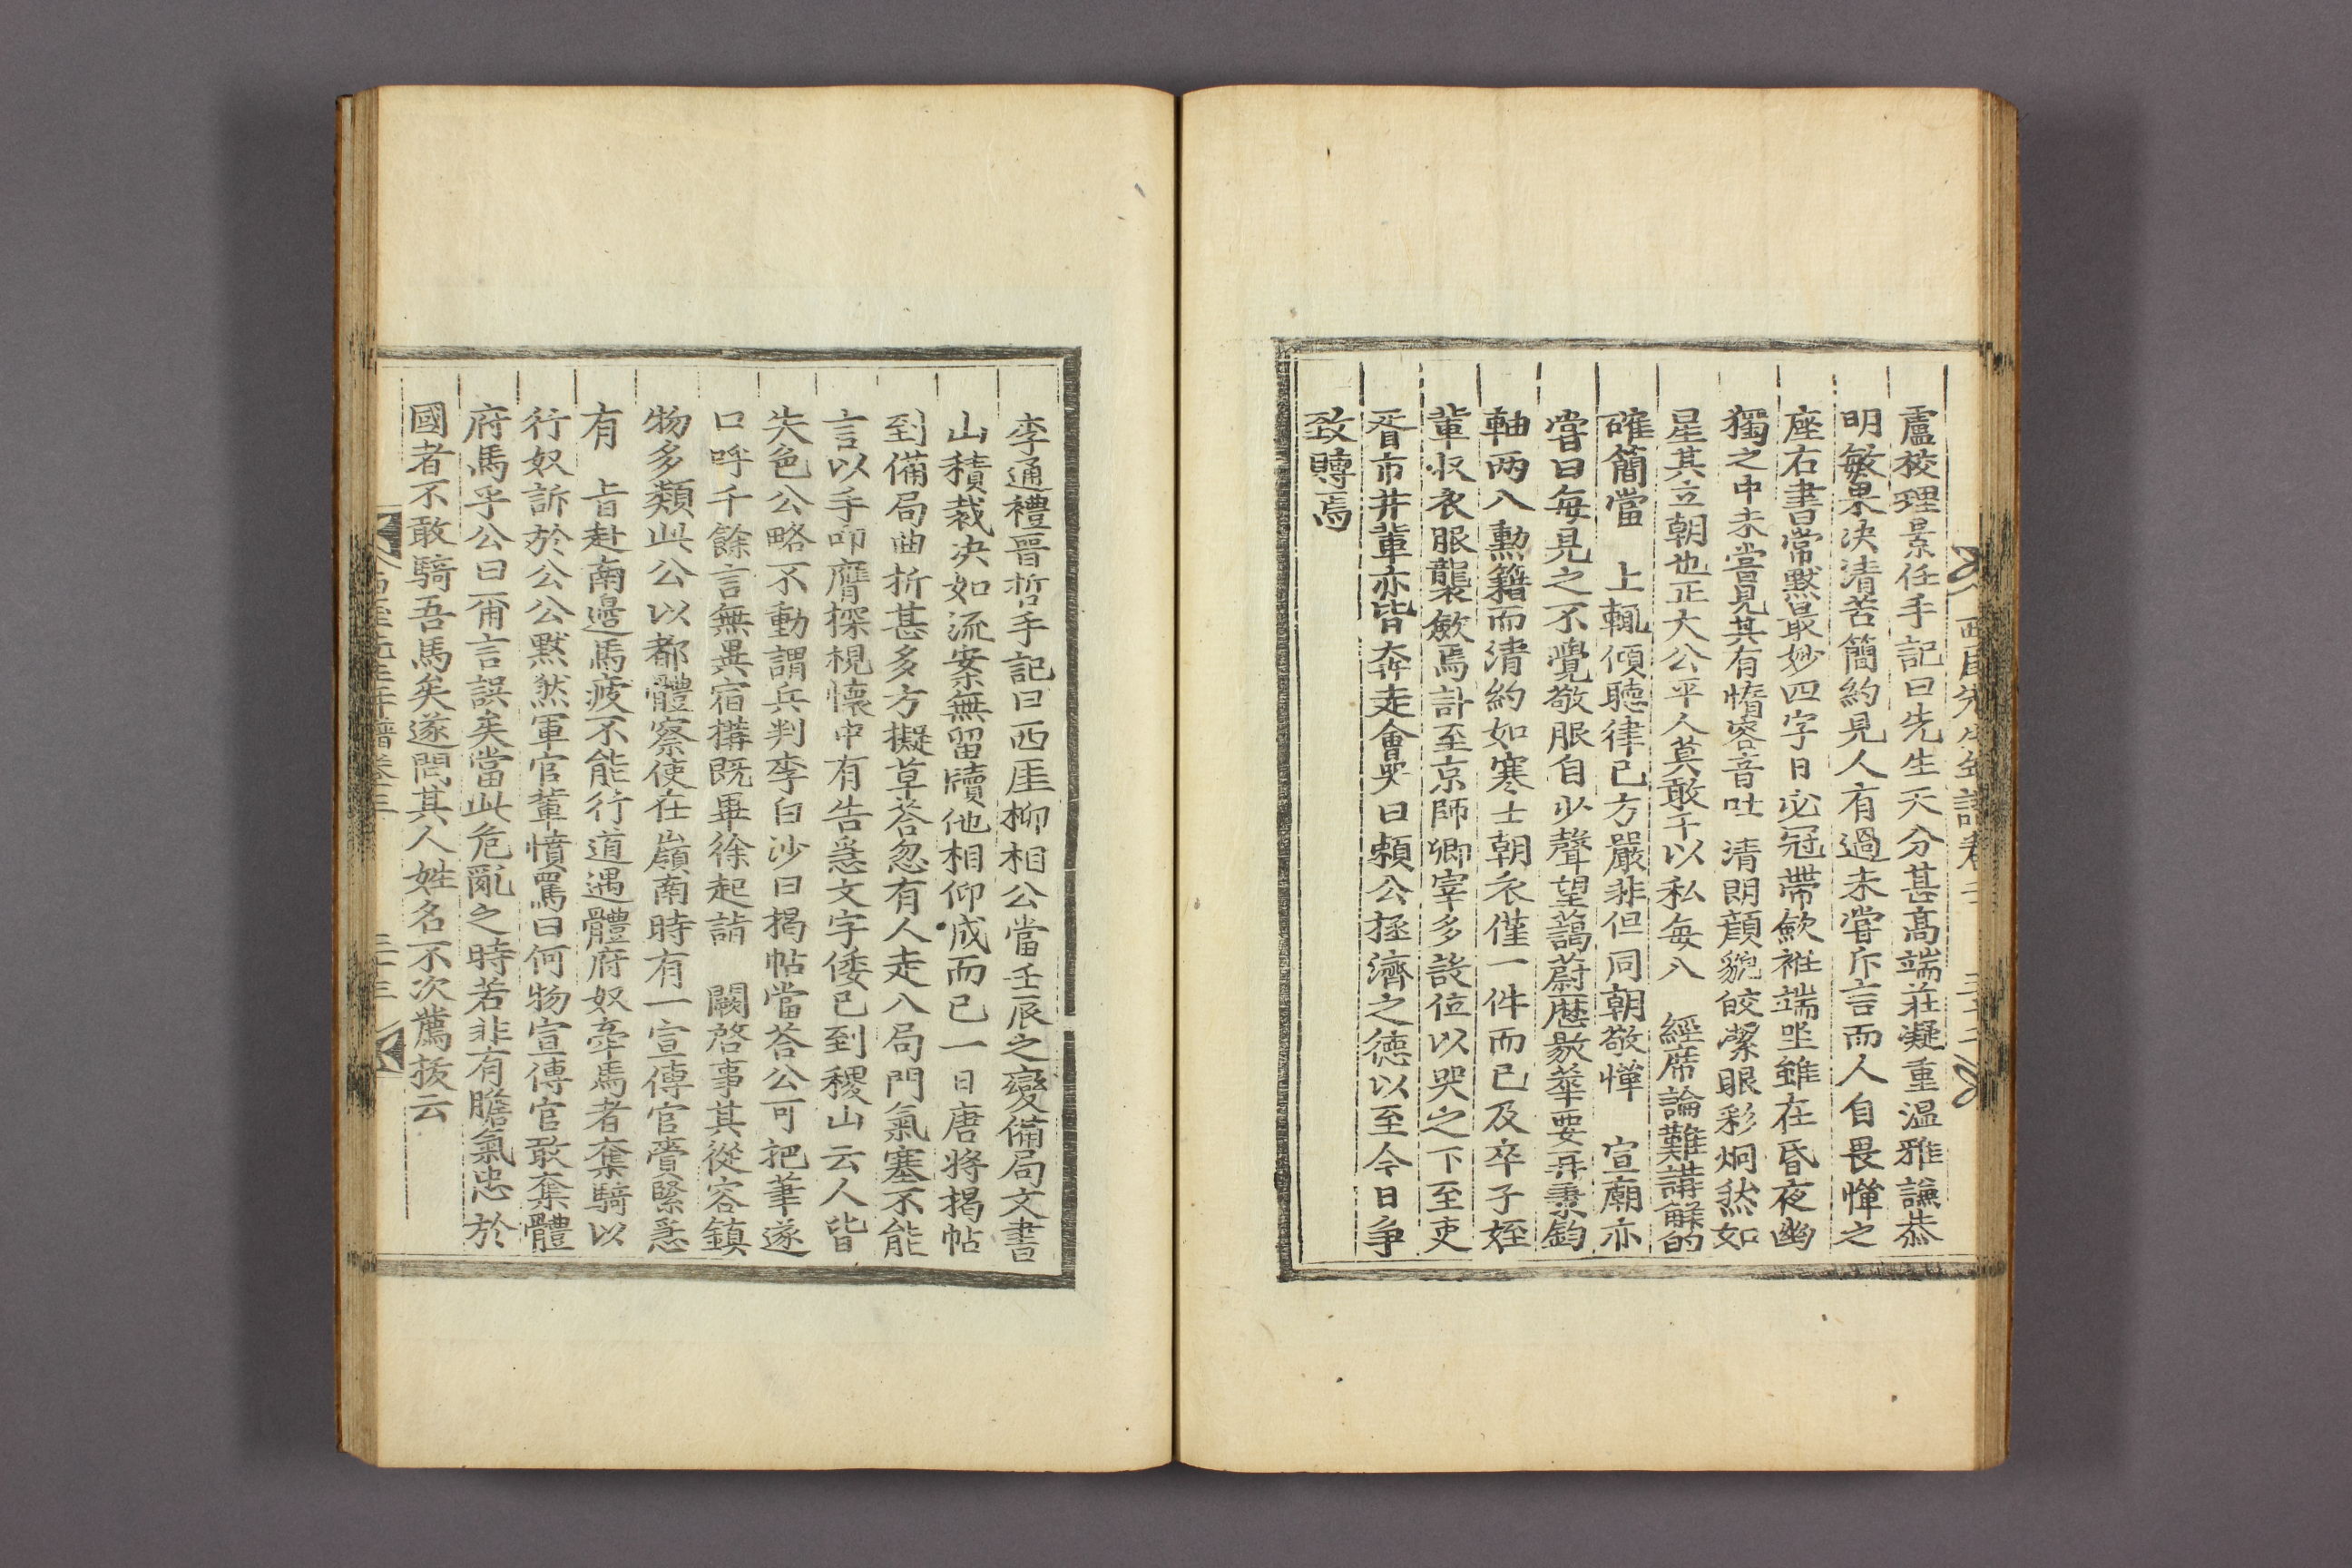 盧校理景任手記曰先生天分甚高端莊凝重溫雅謙恭
明敏果決清苦簡約見人有過未嘗斥言而人自畏憚之
座右書常默最妙四字日必冠帶斂袵端坐雖在昏夜幽
獨之中未嘗見其有惰容音吐清朗顔貌皎潔眼彩炯然如
星其立朝也正大公平人莫敢干以私每入 經席論難講解的
確簡當 上輒傾聽律己方嚴非但同朝敬憚 宣廟亦
嘗曰每見之不覺敬服自少聲望藹蔚歷敭華要再秉鈞
軸两入勳籍而清約如寒士朝衣僅一件而已及卒子姪
輩收衣服襲斂焉訃至京師卿宰多設位以哭之下至吏
胥市井輩亦皆奔走會哭曰賴公拯濟之徳以至今日争
致賻焉
李通禮晋哲手記曰西厓柳相公當壬辰之變備局文書
山積裁決如流案無留牘他相仰成而已一日唐將揭帖
到備局曲折甚多方擬草荅忽有人走入局門氣塞不能
言以手叩膺探梘懷中有告急文字倭已到稷山云人皆
失色公略不動謂兵判李白沙曰揭帖當荅公可把筆遂
口呼千餘言無異宿搆既畢徐起詣 闕啓事其從容鎮
物多類此公以都體察使在嶺南時有一宣傳官賫緊急
有 旨赴南邊馬疲不能行道遇體府奴牽馬者奪騎以
行奴訴於公公默然軍官輩憤罵曰何物宣傳官敢奪體
府馬乎公曰爾言誤矣當此危亂之時若非有膽氣忠於
國者不敢騎吾馬矣遂問其人姓名不次薦拔云
西厓先生年譜卷三 三十三